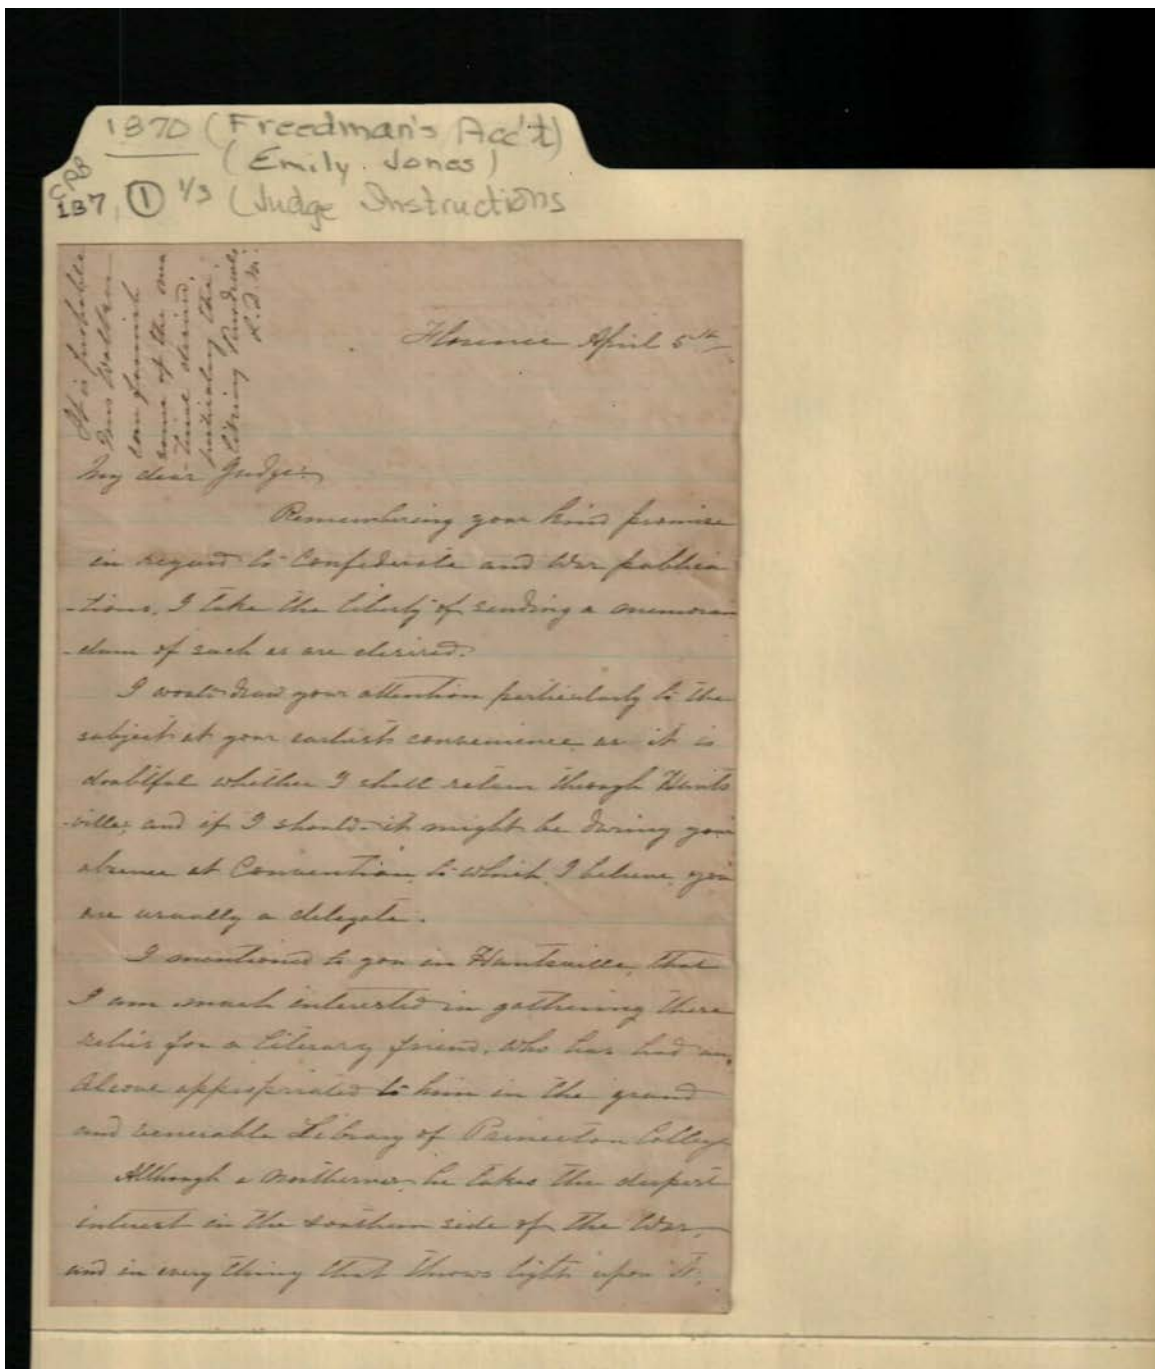 1870 (Freedman's Acc't)
(Emily Jones)
CPB
137, ① 1/3 (Judge Instructions
It is probable
can furnish
some of the ma
-tine desired,
particularly the
literary Periodicals
Florence April 5th
My dear Judge:
Remembering your kind promise
in regard to Confederate and War publica
-tions, I take the liberty of sending a memoran
-dum of such as are desired.
I would draw your attention particularly to the
subject at your earliest convenience as it is
doubtful whether I shall return through Hunts
-ville; and if I should it might be during your
absence at Convention, to which, I believe, you
are usually a delegate.
I mentioned to you in Huntsville, that
I am much interested in gathering these
relics for a literary friend, who has had an
Alcove appropriated to him in the grand
and venerable Library of Princeton College
Although a northerner, he takes the deepest
interest in the southern side of the War,
and in every thing that throws light upon it.